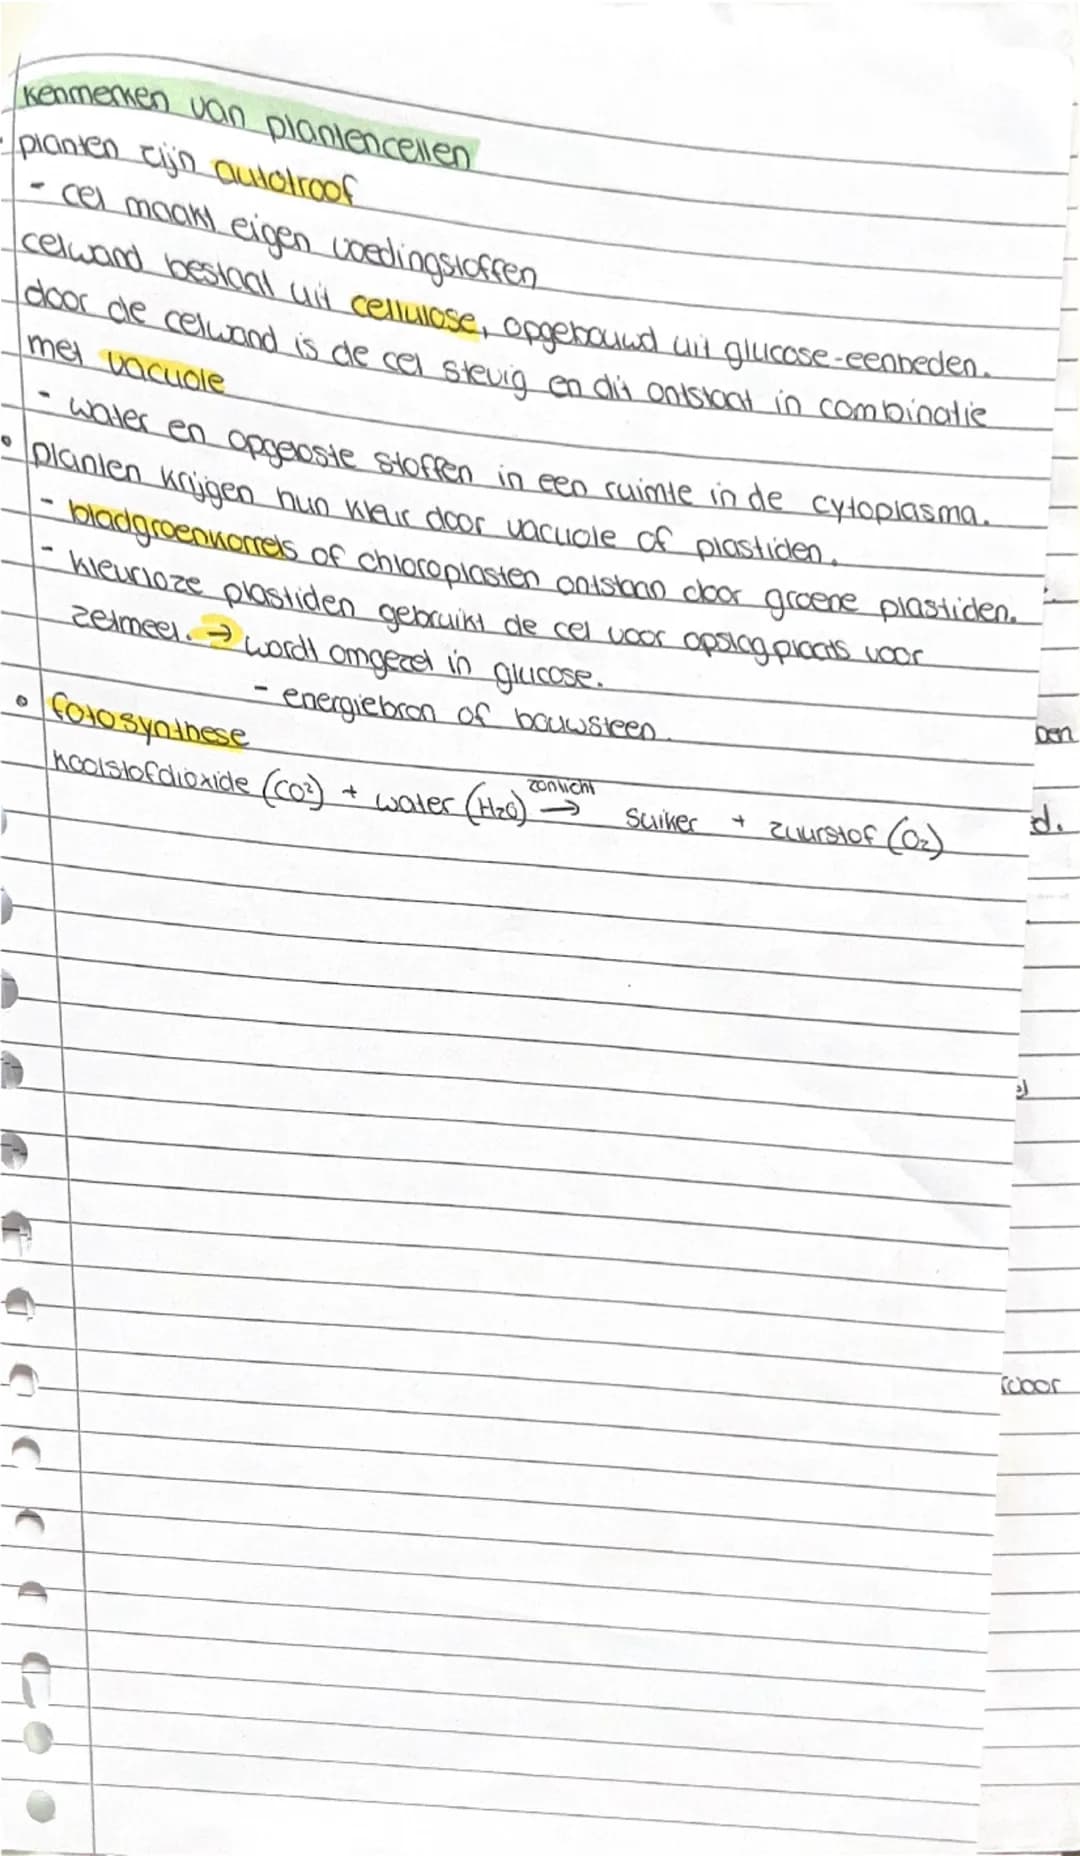 kenmerken van plantencellen
planten zijn autotroof
- cel maakt eigen voedingstoffen
celwand bestaat uit cellulose, opgebouwd uit glucose-eenheden.
door de celwand is de cel stevig en dit ontstaat in combinatie
met vacuole
- water en opgeloste stoffen in een ruimte in de cytoplasma.
• planten krijgen hun kleur door vacuole of plastiden.
- bladgroenkorrels of chloroplasten ontstaan door groene plastiden.
- kleurloze plastiden gebruikt de cel voor opslagplaats voor
zetmeel. → wordt omgezet in glucose.
- energiebron of bouwsteen.
• fotosynthese
koolstofdioxide (CO²) + water (H₂O) zonlicht → suiker + zuurstof (O₂)
ben
d.